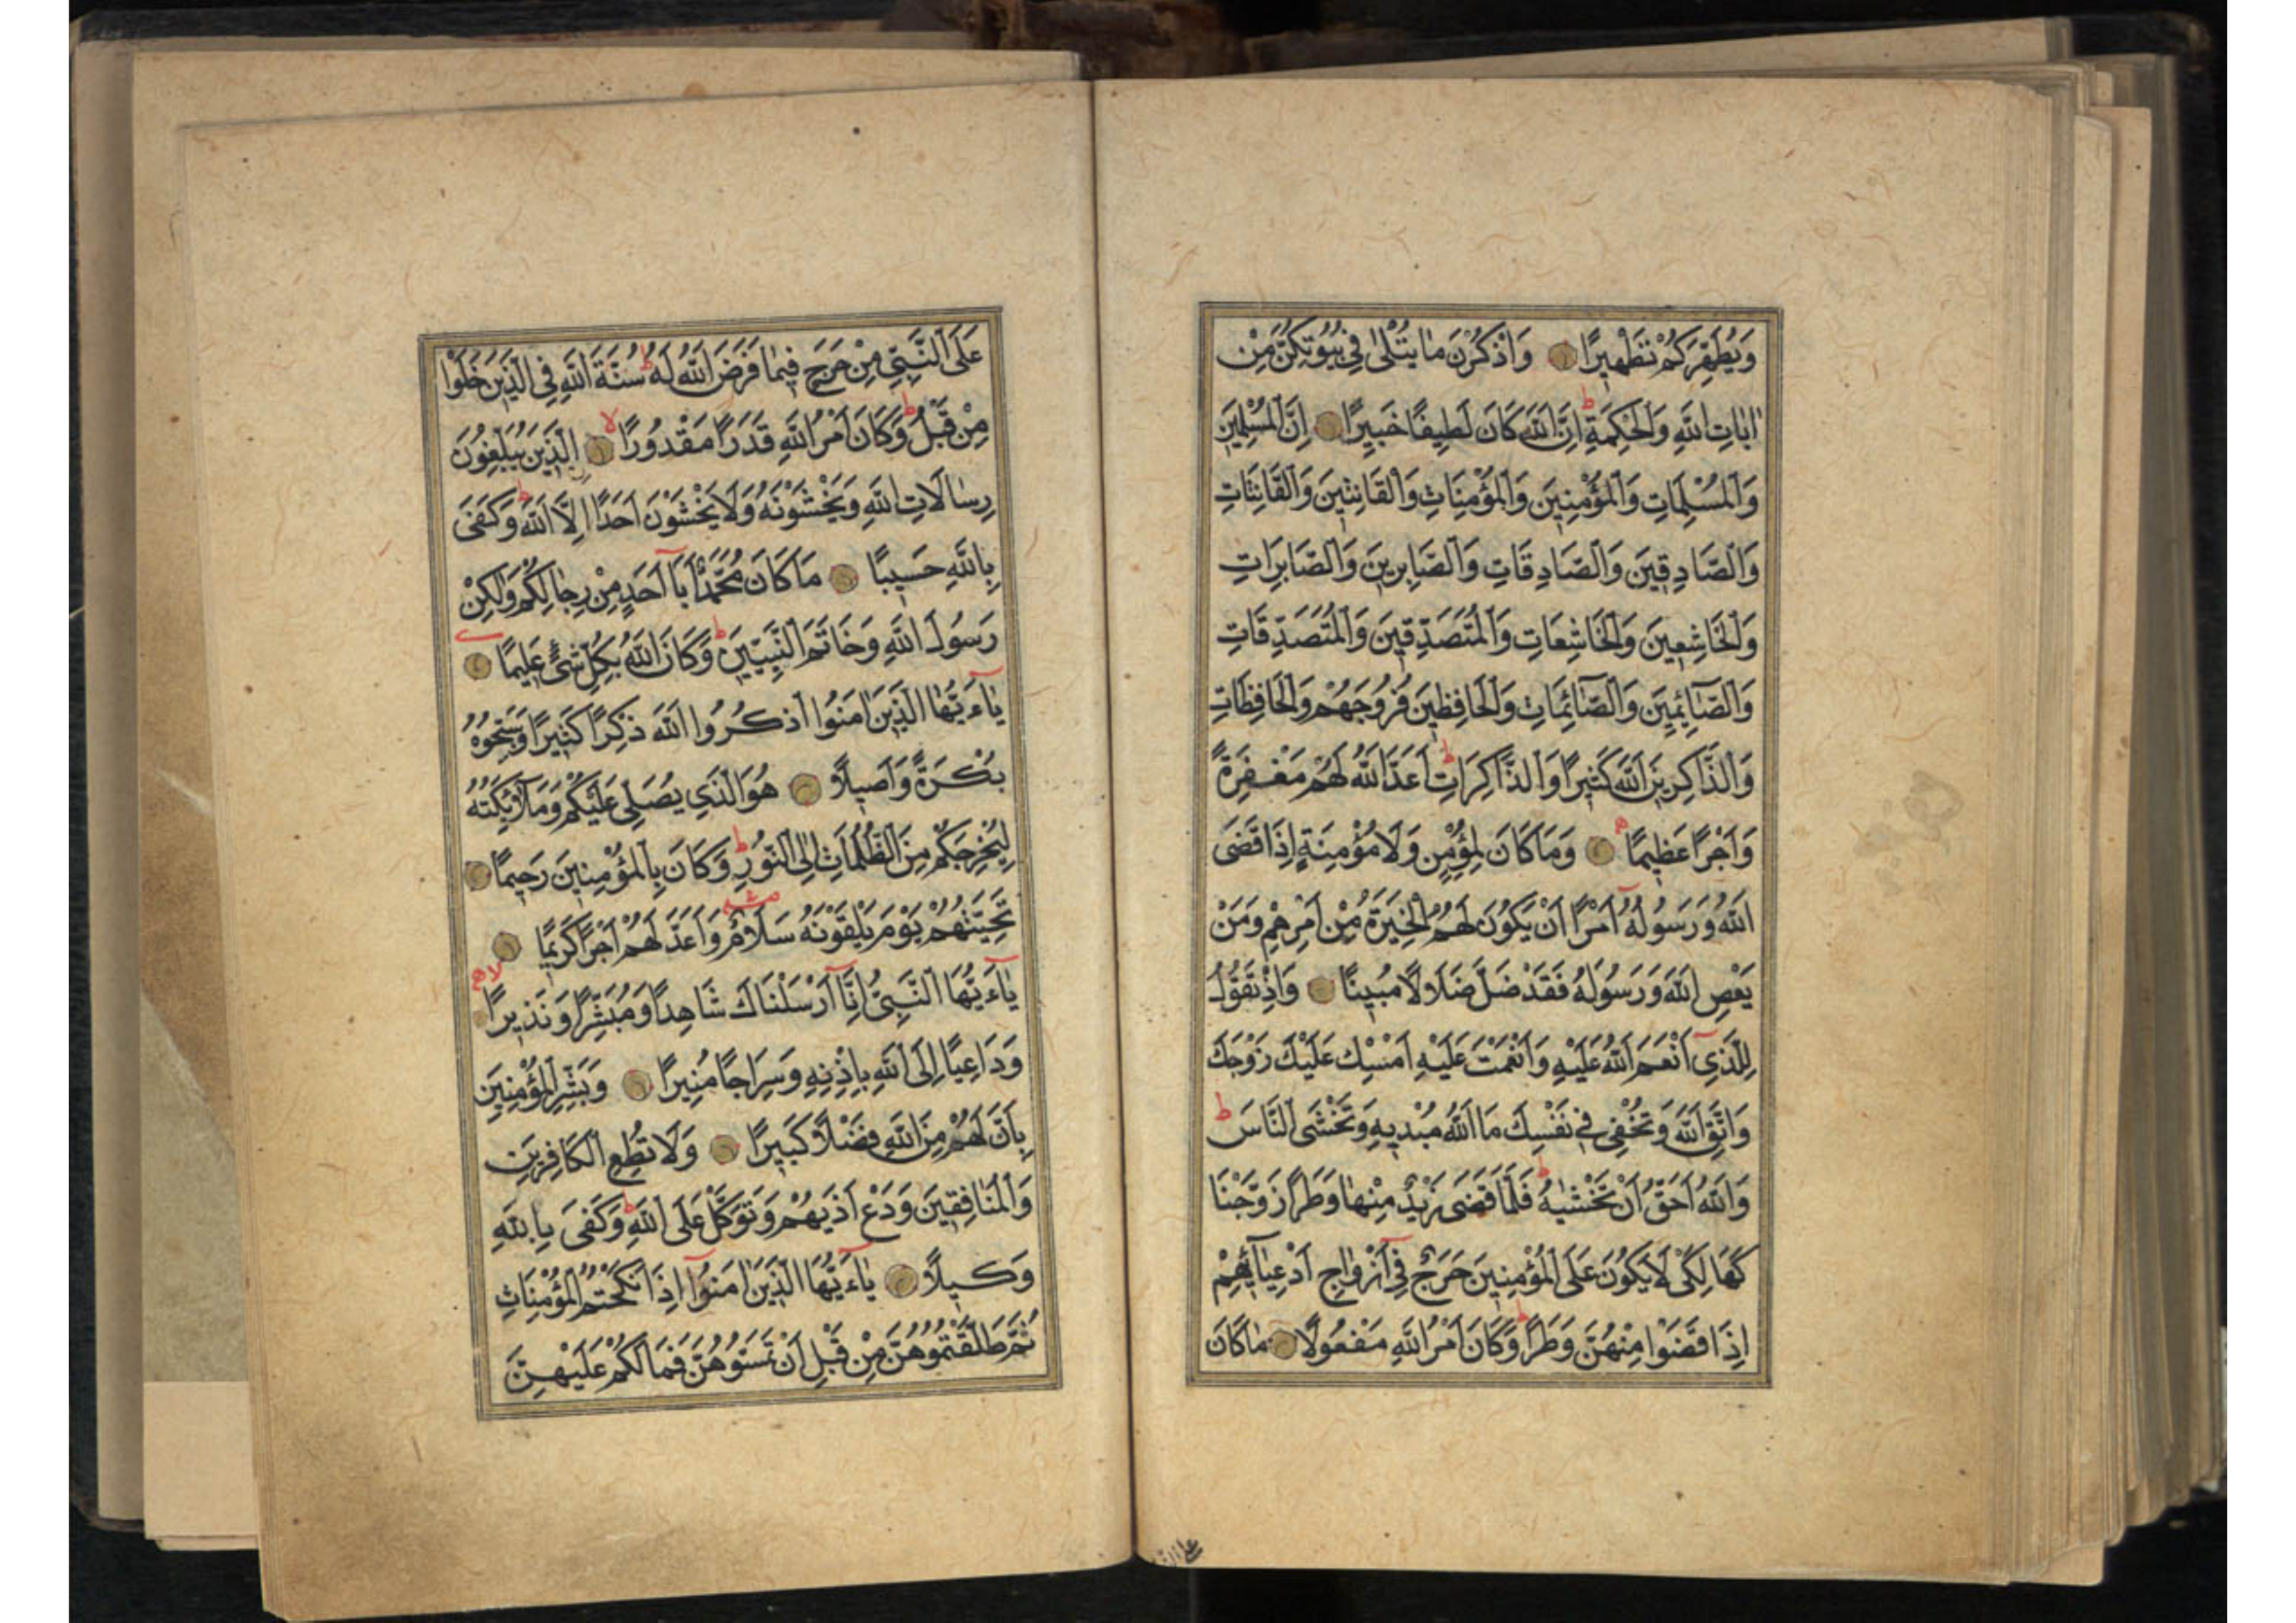 وَيُطَهِّرَكُمْ تَطْهِيرًا وَاذْكُرْنَ مَا يُتْلٰى فِي بُيُوتِكُنَّ مِنْ
اٰيَاتِ اللَّهِ وَالْحِكْمَةِ ط اِنَّ اللَّهَ كَانَ لَطِيفًا خَبِيرًا اِنَّ الْمُسْلِمِينَ
وَالْمُسْلِمَاتِ وَالْمُؤْمِنِينَ وَالْمُؤْمِنَاتِ وَالْقَانِتِينَ وَالْقَانِتَاتِ
وَالصَّادِقِينَ وَالصَّادِقَاتِ وَالصَّابِرِينَ وَالصَّابِرَاتِ
وَالْخَاشِعِينَ وَالْخَاشِعَاتِ وَالْمُتَصَدِّقِينَ وَالْمُتَصَدِّقَاتِ
وَالصَّآئِمِينَ وَالصَّآئِمَاتِ وَالْحَافِظِينَ فُرُوجَهُمْ وَالْحَافِظَاتِ
وَالذَّاكِرِينَ اللَّهَ كَثِيرًا وَالذَّاكِرَاتِ ط اَعَدَّ اللَّهُ لَهُمْ مَغْفِرَةً
وَاَجْرًا عَظِيمًا وَمَا كَانَ لِمُؤْمِنٍ وَلَا مُؤْمِنَةٍ اِذَا قَضَى
اللَّهُ وَرَسُولُهُ اَمْرًا اَنْ يَكُونَ لَهُمُ الْخِيَرَةُ مِنْ اَمْرِهِمْ وَمَنْ
يَعْصِ اللَّهَ وَرَسُولَهُ فَقَدْ ضَلَّ ضَلَالًا مُبِينًا وَاِذْ تَقُولُ
لِلَّذِي اَنْعَمَ اللَّهُ عَلَيْهِ وَاَنْعَمْتَ عَلَيْهِ اَمْسِكْ عَلَيْكَ زَوْجَكَ
وَاتَّقِ اللَّهَ وَتُخْفِي فِي نَفْسِكَ مَا اللَّهُ مُبْدِيهِ وَتَخْشَى النَّاسَ ط
وَاللَّهُ اَحَقُّ اَنْ تَخْشٰيهُ ط فَلَمَّا قَضَى زَيْدٌ مِنْهَا وَطَرًا زَوَّجْنَا
كَهَا لِكَيْ لَا يَكُونَ عَلَى الْمُؤْمِنِينَ حَرَجٌ فِي اَزْوَاجِ اَدْعِيَآئِهِمْ
اِذَا قَضَوْا مِنْهُنَّ وَطَرًا ط وَكَانَ اَمْرُ اللَّهِ مَفْعُولًا مَا كَانَ
عَلَى النَّبِيِّ مِنْ حَرَجٍ فِيمَا فَرَضَ اللَّهُ لَهُ ط سُنَّةَ اللَّهِ فِي الَّذِينَ خَلَوْا
مِنْ قَبْلُ ط وَكَانَ اَمْرُ اللَّهِ قَدَرًا مَقْدُورًا لا الَّذِينَ يُبَلِّغُونَ
رِسَالَاتِ اللَّهِ وَيَخْشَوْنَهُ وَلَا يَخْشَوْنَ اَحَدًا اِلَّا اللَّهَ ط وَكَفَى
بِاللَّهِ حَسِيبًا مَا كَانَ مُحَمَّدٌ اَبَآ اَحَدٍ مِنْ رِجَالِكُمْ وَلٰكِنْ
رَسُولَ اللَّهِ وَخَاتَمَ النَّبِيِّينَ ط وَكَانَ اللَّهُ بِكُلِّ شَيْءٍ عَلِيمًا
يَآءَيُّهَا الَّذِينَ اٰمَنُوا اذْكُرُوا اللَّهَ ذِكْرًا كَثِيرًا وَسَبِّحُوهُ
بُكْرَةً وَاَصِيلًا هُوَ الَّذِي يُصَلِّي عَلَيْكُمْ وَمَلَآئِكَتُهُ
لِيُخْرِجَكُمْ مِنَ الظُّلُمَاتِ اِلَى النُّورِ ط وَكَانَ بِالْمُؤْمِنِينَ رَحِيمًا
تَحِيَّتُهُمْ يَوْمَ يَلْقَوْنَهُ سَلَامٌ وَاَعَدَّ لَهُمْ اَجْرًا كَرِيمًا
يَآءَيُّهَا النَّبِيُّ اِنَّآ اَرْسَلْنَاكَ شَاهِدًا وَمُبَشِّرًا وَنَذِيرًا لا
وَدَاعِيًا اِلَى اللَّهِ بِاِذْنِهِ وَسِرَاجًا مُنِيرًا وَبَشِّرِ الْمُؤْمِنِينَ
بِاَنَّ لَهُمْ مِنَ اللَّهِ فَضْلًا كَبِيرًا وَلَا تُطِعِ الْكَافِرِينَ
وَالْمُنَافِقِينَ وَدَعْ اَذٰيهُمْ وَتَوَكَّلْ عَلَى اللَّهِ ط وَكَفَى بِاللَّهِ
وَكِيلًا يَآءَيُّهَا الَّذِينَ اٰمَنُوا اِذَا نَكَحْتُمُ الْمُؤْمِنَاتِ
ثُمَّ طَلَّقْتُمُوهُنَّ مِنْ قَبْلِ اَنْ تَمَسُّوهُنَّ فَمَا لَكُمْ عَلَيْهِنَّ